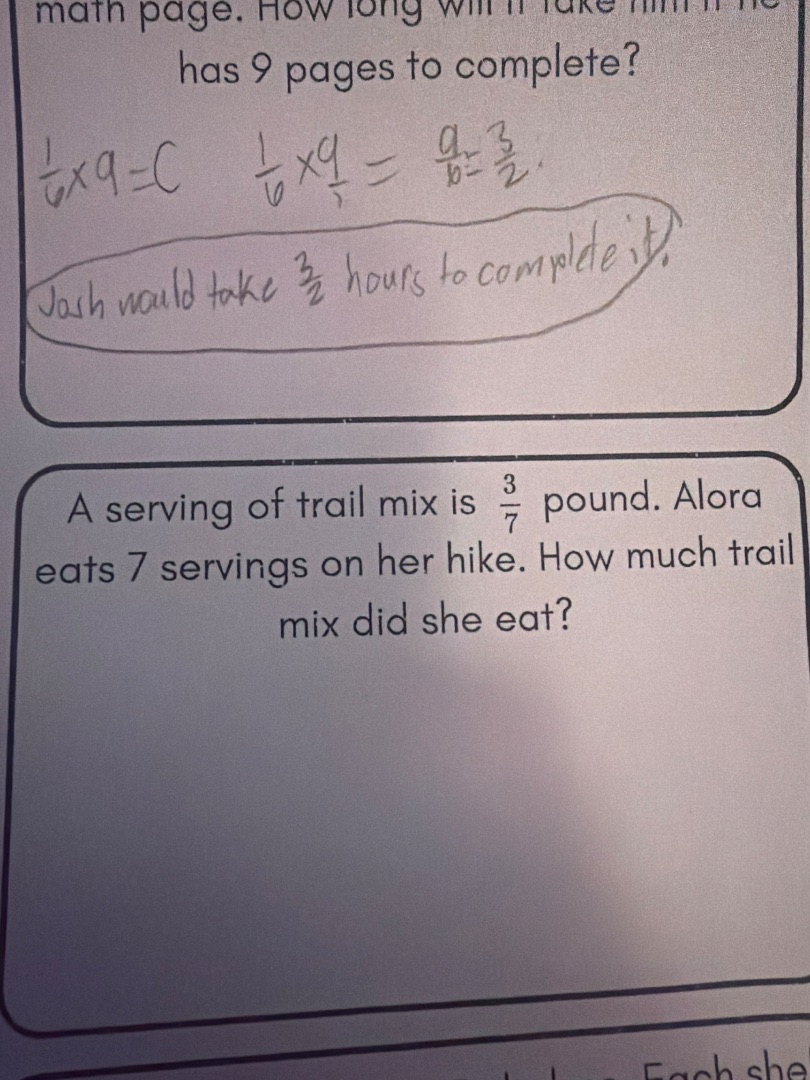 math page. How long will it take him if he
has 9 pages to complete?
1/6 x 9 = C 1/6 x 9/1 = 9/6 = 3/2.
Josh would take 3/2 hours to complete it.
A serving of trail mix is 3/7 pound. Alora
eats 7 servings on her hike. How much trail
mix did she eat?
Each she